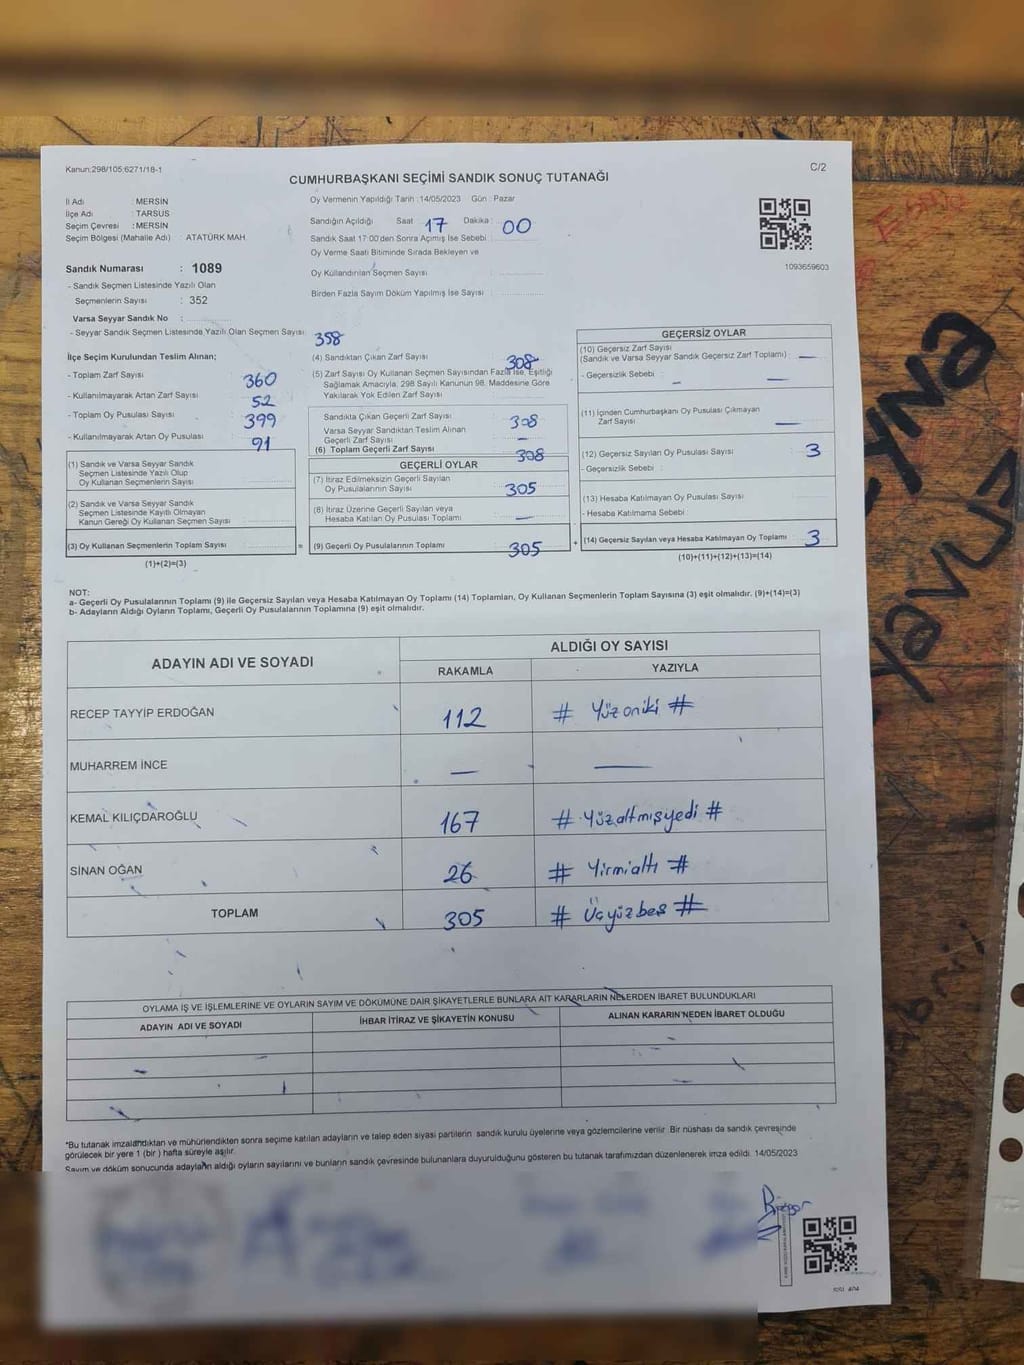 Kanun:298/105;6271/18-1
C/2
CUMHURBAŞKANI SEÇİMİ SANDIK SONUÇ TUTANAĞI
İl Adı : MERSİN
İlçe Adı : TARSUS
Seçim Çevresi : MERSİN
Seçim Bölgesi (Mahalle Adı) : ATATÜRK MAH.
Sandık Numarası : 1089
- Sandık Seçmen Listesinde Yazılı Olan
Seçmenlerin Sayısı : 352
Varsa Seyyar Sandık No :
- Seyyar Sandık Seçmen Listesinde Yazılı Olan Seçmen Sayısı:
358
Oy Vermenin Yapıldığı Tarih : 14/05/2023 Gün : Pazar
Sandığın Açıldığı Saat 17 Dakika : 00
Sandık Saat 17:00'den Sonra Açılmış İse Sebebi :
Oy Verme Saati Bitiminde Sırada Bekleyen ve
Oy Kullandırılan Seçmen Sayısı :
Birden Fazla Sayım Döküm Yapılmış İse Sayısı :
1093659603
İlçe Seçim Kurulundan Teslim Alınan;
- Toplam Zarf Sayısı : 360
- Kullanılmayarak Artan Zarf Sayısı : 52
- Toplam Oy Pusulası Sayısı : 399
- Kullanılmayarak Artan Oy Pusulası : 91
(1) Sandık ve Varsa Seyyar Sandık
Seçmen Listesinde Yazılı Olup
Oy Kullanan Seçmenlerin Sayısı
(2) Sandık ve Varsa Seyyar Sandık
Seçmen Listesinde Kayıtlı Olmayan
Kanun Gereği Oy Kullanan Seçmen Sayısı
(3) Oy Kullanan Seçmenlerin Toplam Sayısı :
(1)+(2)=(3)
=
(4) Sandıktan Çıkan Zarf Sayısı : 308
(5) Zarf Sayısı Oy Kullanan Seçmen Sayısından Fazla İse, Eşitliği
Sağlamak Amacıyla, 298 Sayılı Kanunun 98. Maddesine Göre
Yakılarak Yok Edilen Zarf Sayısı :
Sandıkta Çıkan Geçerli Zarf Sayısı : 308
Varsa Seyyar Sandıktan Teslim Alınan
Geçerli Zarf Sayısı : —
(6) Toplam Geçerli Zarf Sayısı : 308
GEÇERLİ OYLAR
(7) İtiraz Edilmeksizin Geçerli Sayılan
Oy Pusulalarının Sayısı : 305
(8) İtiraz Üzerine Geçerli Sayılan veya
Hesaba Katılan Oy Pusulası Toplamı : —
(9) Geçerli Oy Pusulalarının Toplamı : 305
+
GEÇERSİZ OYLAR
(10) Geçersiz Zarf Sayısı
(Sandık ve Varsa Seyyar Sandık Geçersiz Zarf Toplamı) : —
- Geçersizlik Sebebi : — —
(11) İçinden Cumhurbaşkanı Oy Pusulası Çıkmayan
Zarf Sayısı : —
(12) Geçersiz Sayılan Oy Pusulası Sayısı : 3
- Geçersizlik Sebebi :
(13) Hesaba Katılmayan Oy Pusulası Sayısı :
- Hesaba Katılmama Sebebi :
(14) Geçersiz Sayılan veya Hesaba Katılmayan Oy Toplamı : 3
(10)+(11)+(12)+(13)=(14)
NOT:
a- Geçerli Oy Pusulalarının Toplamı (9) ile Geçersiz Sayılan veya Hesaba Katılmayan Oy Toplamı (14) Toplamları, Oy Kullanan Seçmenlerin Toplam Sayısına (3) eşit olmalıdır. (9)+(14)=(3)
b- Adayların Aldığı Oyların Toplamı, Geçerli Oy Pusulalarının Toplamına (9) eşit olmalıdır.
ADAYIN ADI VE SOYADI
ALDIĞI OY SAYISI
RAKAMLA YAZIYLA
RECEP TAYYİP ERDOĞAN 112 # Yüzoniki #
MUHARREM İNCE — —
KEMAL KILIÇDAROĞLU 167 # Yüzaltmışyedi #
SİNAN OĞAN 26 # Yirmialtı #
TOPLAM 305 # Üçyüzbeş #
OYLAMA İŞ VE İŞLEMLERİNE VE OYLARIN SAYIM VE DÖKÜMÜNE DAİR ŞİKAYETLERLE BUNLARA AİT KARARLARIN NELERDEN İBARET BULUNDUKLARI
ADAYIN ADI VE SOYADI İHBAR İTİRAZ VE ŞİKAYETİN KONUSU ALINAN KARARIN NEDEN İBARET OLDUĞU
*Bu tutanak imzalandıktan ve mühürlendikten sonra seçime katılan adayların ve talep eden siyasi partilerin sandık kurulu üyelerine veya gözlemcilerine verilir. Bir nüshası da sandık çevresinde
görülecek bir yere 1 (bir) hafta süreyle asılır.
Sayım ve döküm sonucunda adayların aldığı oyların sayılarını ve bunların sandık çevresinde bulunanlara duyurulduğunu gösteren bu tutanak tarafımızdan düzenlenerek imza edildi. 14/05/2023